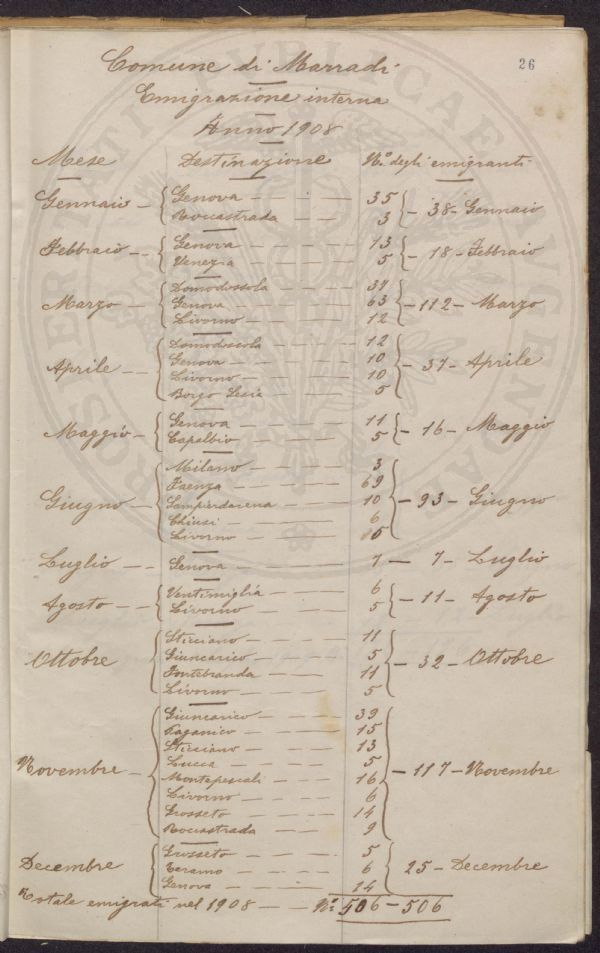 26
Comune di Marradi
Emigrazione interna
Anno 1908
Mese Destinazione N.o degli emigranti
Gennaio - Genova - - - 35 - 38 - Gennaio
Roccastrada - - 3
Febbraio - - Genova - - - - 13 - 18 - Febbraio
Venezia - - - - 5
Marzo - Domodossola - - - 37 - 112 - Marzo
Genova - - - - 63
Livorno - - - - 12
Aprile - Domodossola - - 12 - 37 - Aprile
Genova - - - - 10
Livorno - - - - 10
Borgo Sesia - - - 5
Maggio - Genova - - - - 11 - 16 - Maggio
Capalbio - - - - 5
Giugno - Milano - - - - 3 - 93 - Giugno
Faenza - - - - 69
Sampierdarena - - - 10
Chiusi - - - 6
Livorno - - - 5
Luglio - - Genova - - - 7 - 7 - Luglio
Agosto - - Ventimiglia - - - 6 - 11 - Agosto
Livorno - - - 5
Ottobre Sticciano - - - 11 - 32 - Ottobre
Giuncarico - - - 5
Fontebranda - - 11
Livorno - - - 5
Novembre - Giuncarico - - - 39 - 117 - Novembre
Paganico - - - 15
Sticciano - - - 13
Lucca - - - 5
Montepescali - - - 16
Livorno - - - 6
Grosseto - - - 14
Roccastrada - - - 9
Decembre Grosseto - - - 5 25 - Decembre
Teramo - - - 6
Genova - - - 14
Totale emigrati nel 1908 - - N.o 506 - 506